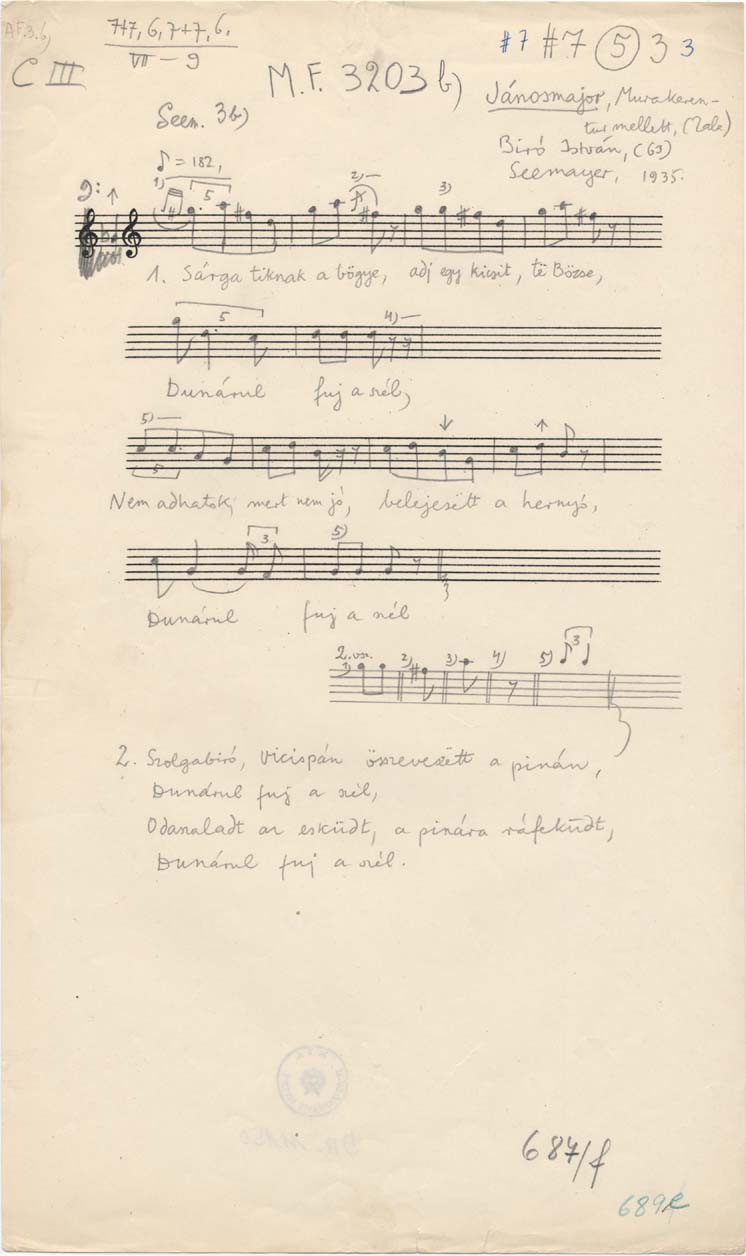 A.F.3.b,
7+7, 6, 7+7, 6.
VII – 9
C III
M.F. 3203 b)
#7 #7 5 3 3
Jánosmajor, Murakeren-
tur mellett, (Zala)
Biró István, (63)
Seemayer, 1935.
Seem. 3b)
♪ = 182,
1) 5 2) — 3)
1. Sárga tiknak a bögye, adj egy kicsit, të Bözse,
5 4) —
Dunárul fuj a szél,
5) —
5
Nem adhatok, mert nem jó, belejesëtt a hernyó,
3 5)
Dunárul fuj a szél
2. vsz.
1) 2) 3) 4) 5) 3
2. Szolgabiró, vicispán összevesëtt a pinán,
Dunárul fuj a szél,
Odaszaladt az esküdt, a pinára ráfeküdt,
Dunárul fuj a szél.
687/f
689e